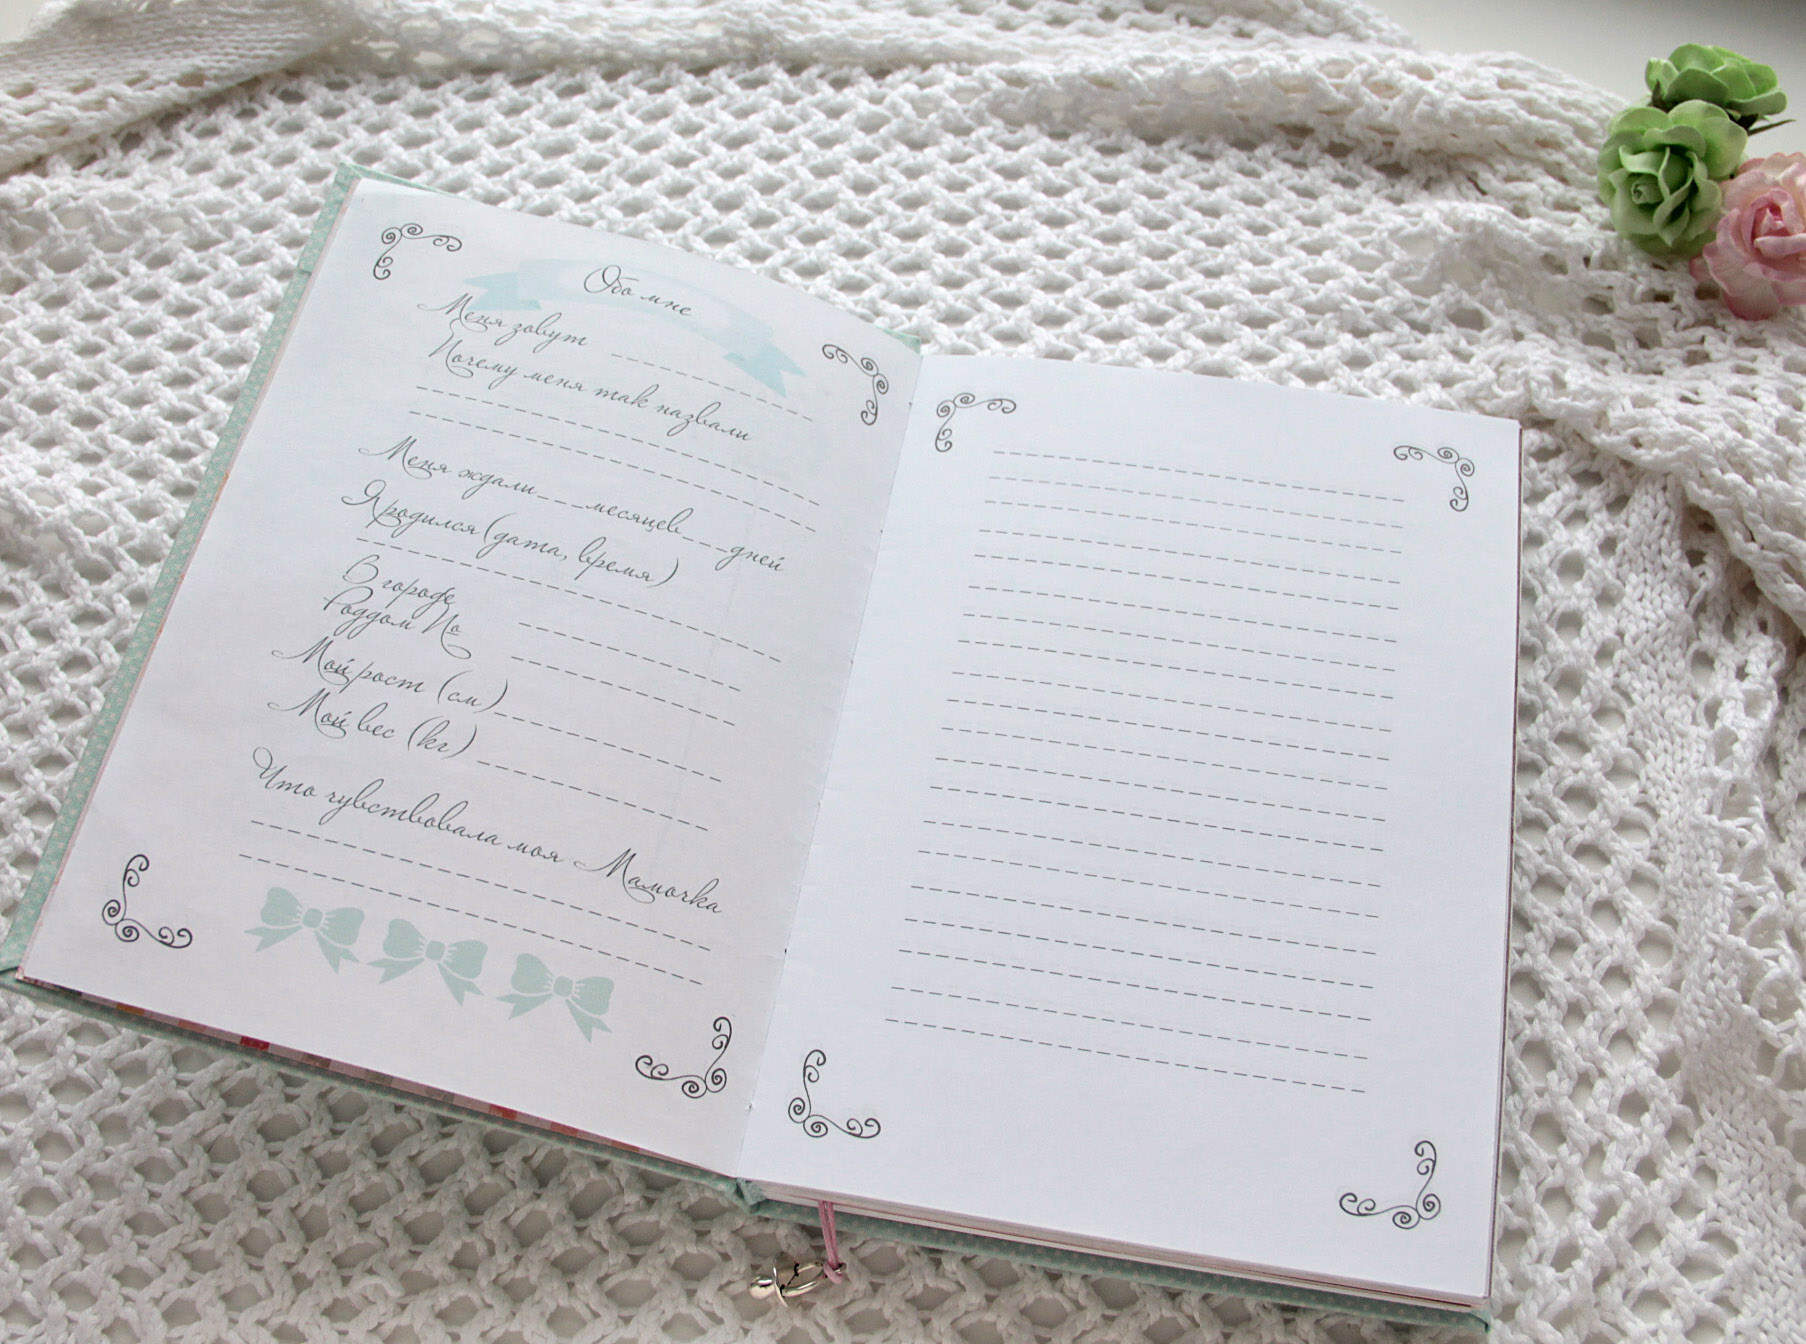 Обо мне
Меня зовут
Почему меня так назвали
Меня ждали___месяцев___дней
Я родился(дата, время)
В городе
Роддом №
Мой рост (см)
Мой вес (кг)
Что чувствовала моя Мамочка